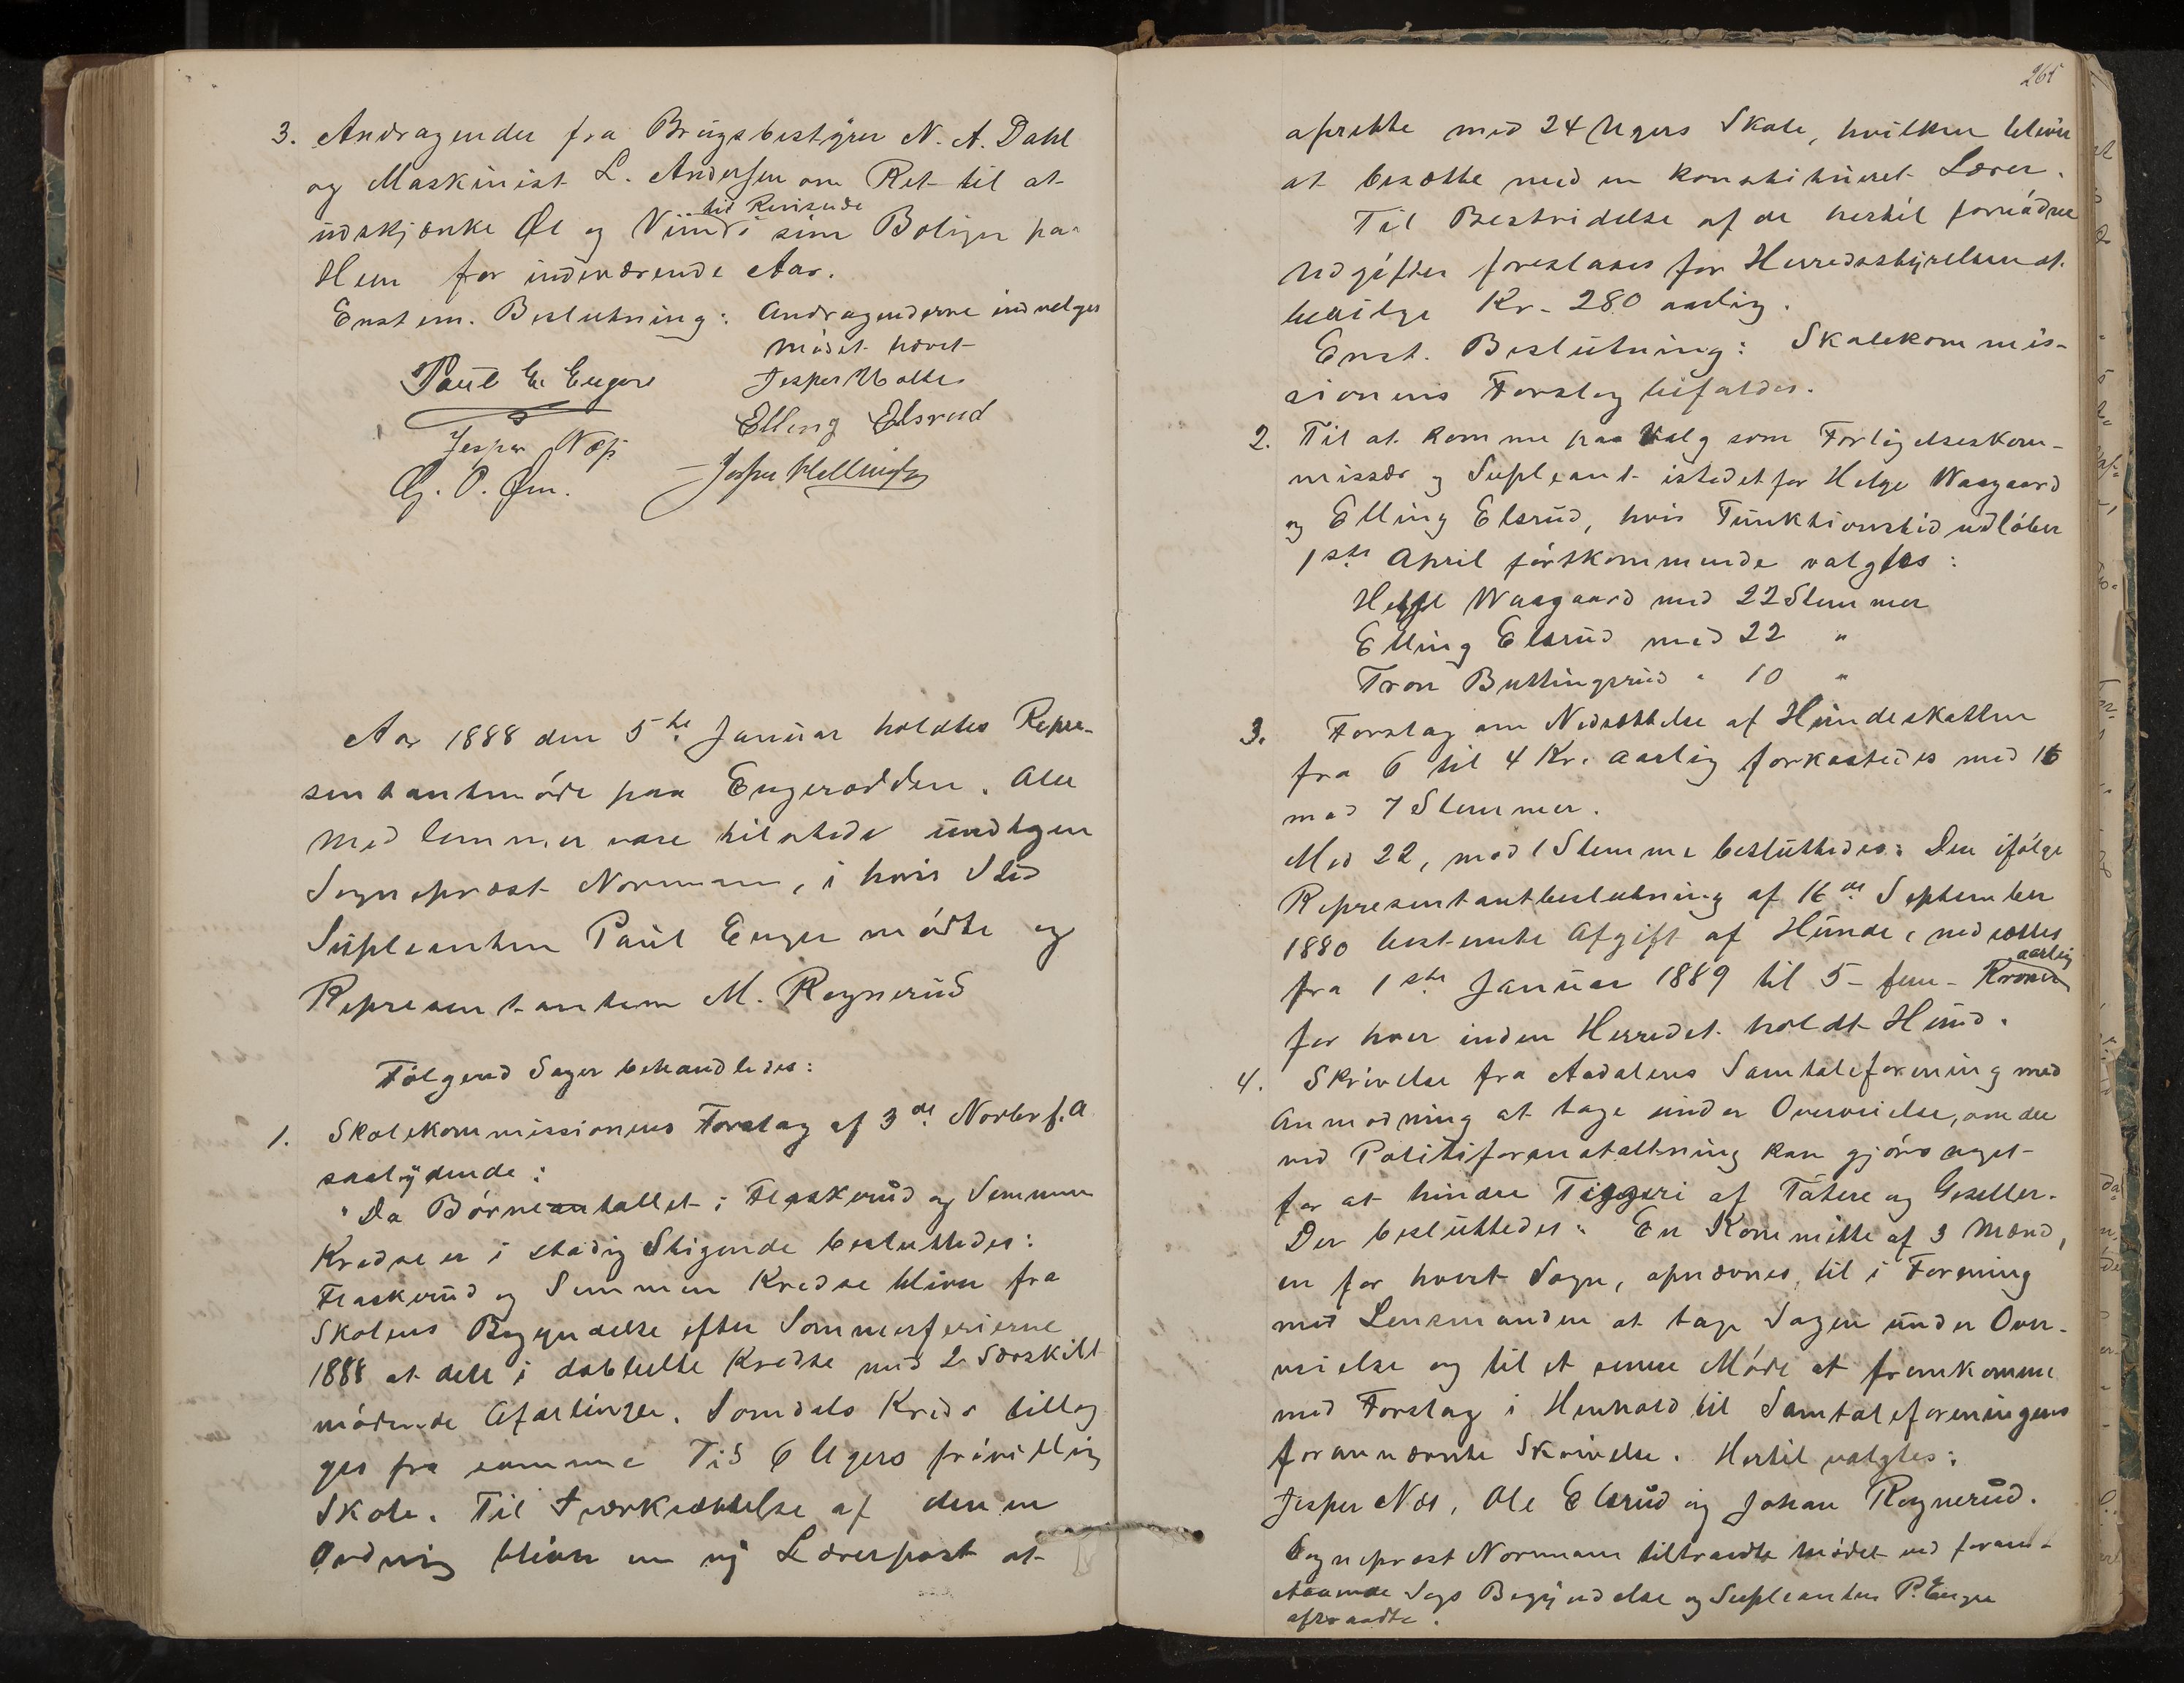 3. Andragender fra Brugsbestyrer N. A. Dahl
og Maskinist L. Andersen om Ret til at
til Reisende
udskjænke Øl og Viin i sine Boliger paa
Hen for indeværende Aar.
Enstem. Beslutning: Andragenderne indvelges
Mødet hævet
Paul E. Enger Jesper Moltke
Elling Elsrud
Jesper Næss
G. P. Øen. Jesper Hallingby
Aar 1888 den 5te Januar holdtes Repre-
sentantmøde paa Engerodden. Alle
Medlemmer vare tilstede undtagen
Sogneprest Normann, i hvis Sted
Supleanten Paul Enger mødte og
Representanten M. Rognerud
Følgend Sager behandledes:
1. Skolekommissionens Forslag af 3de Novbr f. A
saalydende:
"Da Børneantallet i Flaskerud og Semmen
Kredse er i stadig Stigende besluttedes:
Flaskerud og Semmen Kredse bliver fra
Skolens Begyndelse efter Sommerferierne
1888 at dele i dobbelte Kredse med 2 særskilt
mødende Afdelinger. Somdals Kreds tillæg
ges fra samme Tid 6 Ugers frivillig
Skole. Til Iværksættelse af denne
Ordning bliver en ny Lærerpost at
265
oprette med 24 Ugers Skole, hvilken bliver
at besætte med en konstitueret Lærer.
Til Bestridelse af de hertil fornødne
Udgifter foreslaaes for Herredsstyrelsen at
bevilge Kr. 280 aarlig.
Enst. Beslutning: Skolekommis-
sionens Forslag bifaldes.
2. Til at komme paa Valg som Forligelseskom-
missær og Supleant istedetfor Helge Waagaard
og Elling Elsrud, hvis Funktionstid udløber
1ste April førstkommende valgtes:
Helge Waagaard med 22 Stemmer
Elling Elsrud med 22 "
Tron Buttingsrud " 10 "
3. Forslag om Nedsættelse af Hundeskatten
fra 6 til 4 Kr. aarlig forkastedes med 16
mod 7 Stemmer.
Med 22, mod 1 Stemme besluttedes: Den ifølge
Representantbeslutning af 16de September
1880 bestemte Afgift af Hunde, nedsættes
aarlig
fra 1ste Januar 1889 til 5 - fem - Kroner
for hver inden Herredet holdt Hund.
4. Skrivelse fra Aadalens Samtaleforening med
Anmodning at tage under Overveielse, om der
ved Politiforanstaltning kan gjøres noget
for at hindre Tiggeri af Tatere og Geseller.
Der besluttedes: En Kommitte af 3 Mænd,
en for hvert Sogn, opnævnes, til i Forening
med Lensmanden at tage Sagen under Over-
veielse og til et senere Møde at fremkomme
med Forslag i Henhold til Samtaleforeningens
forannævnte Skrivelse. Hertil valgtes:
Jesper Næs, Ole Elsrud og Johan Rognerud.
Sogneprest Normann tiltraadte Mødet ved foran-
staaende Sags Begyndelse og Supleanten P. Enger
aftraadte.